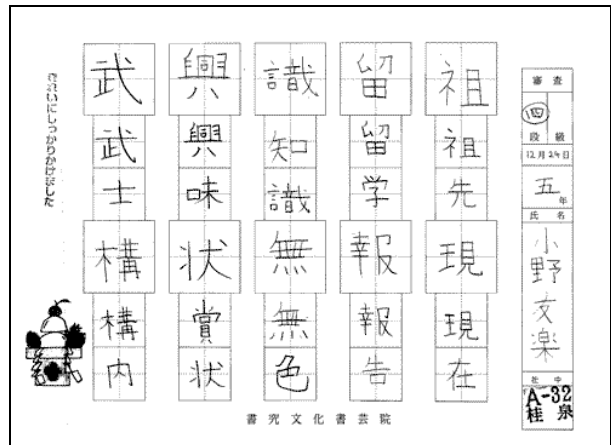 審査
四
段 級
12月24日
五年
氏名
小野友楽
社中
A-32
桂泉
祖
祖先
現
現在
留
留学
報
報告
識
知識
無
無色
興
興味
状
賞状
武
武士
構
構内
きれいにしっかりかけました
書究文化書芸院